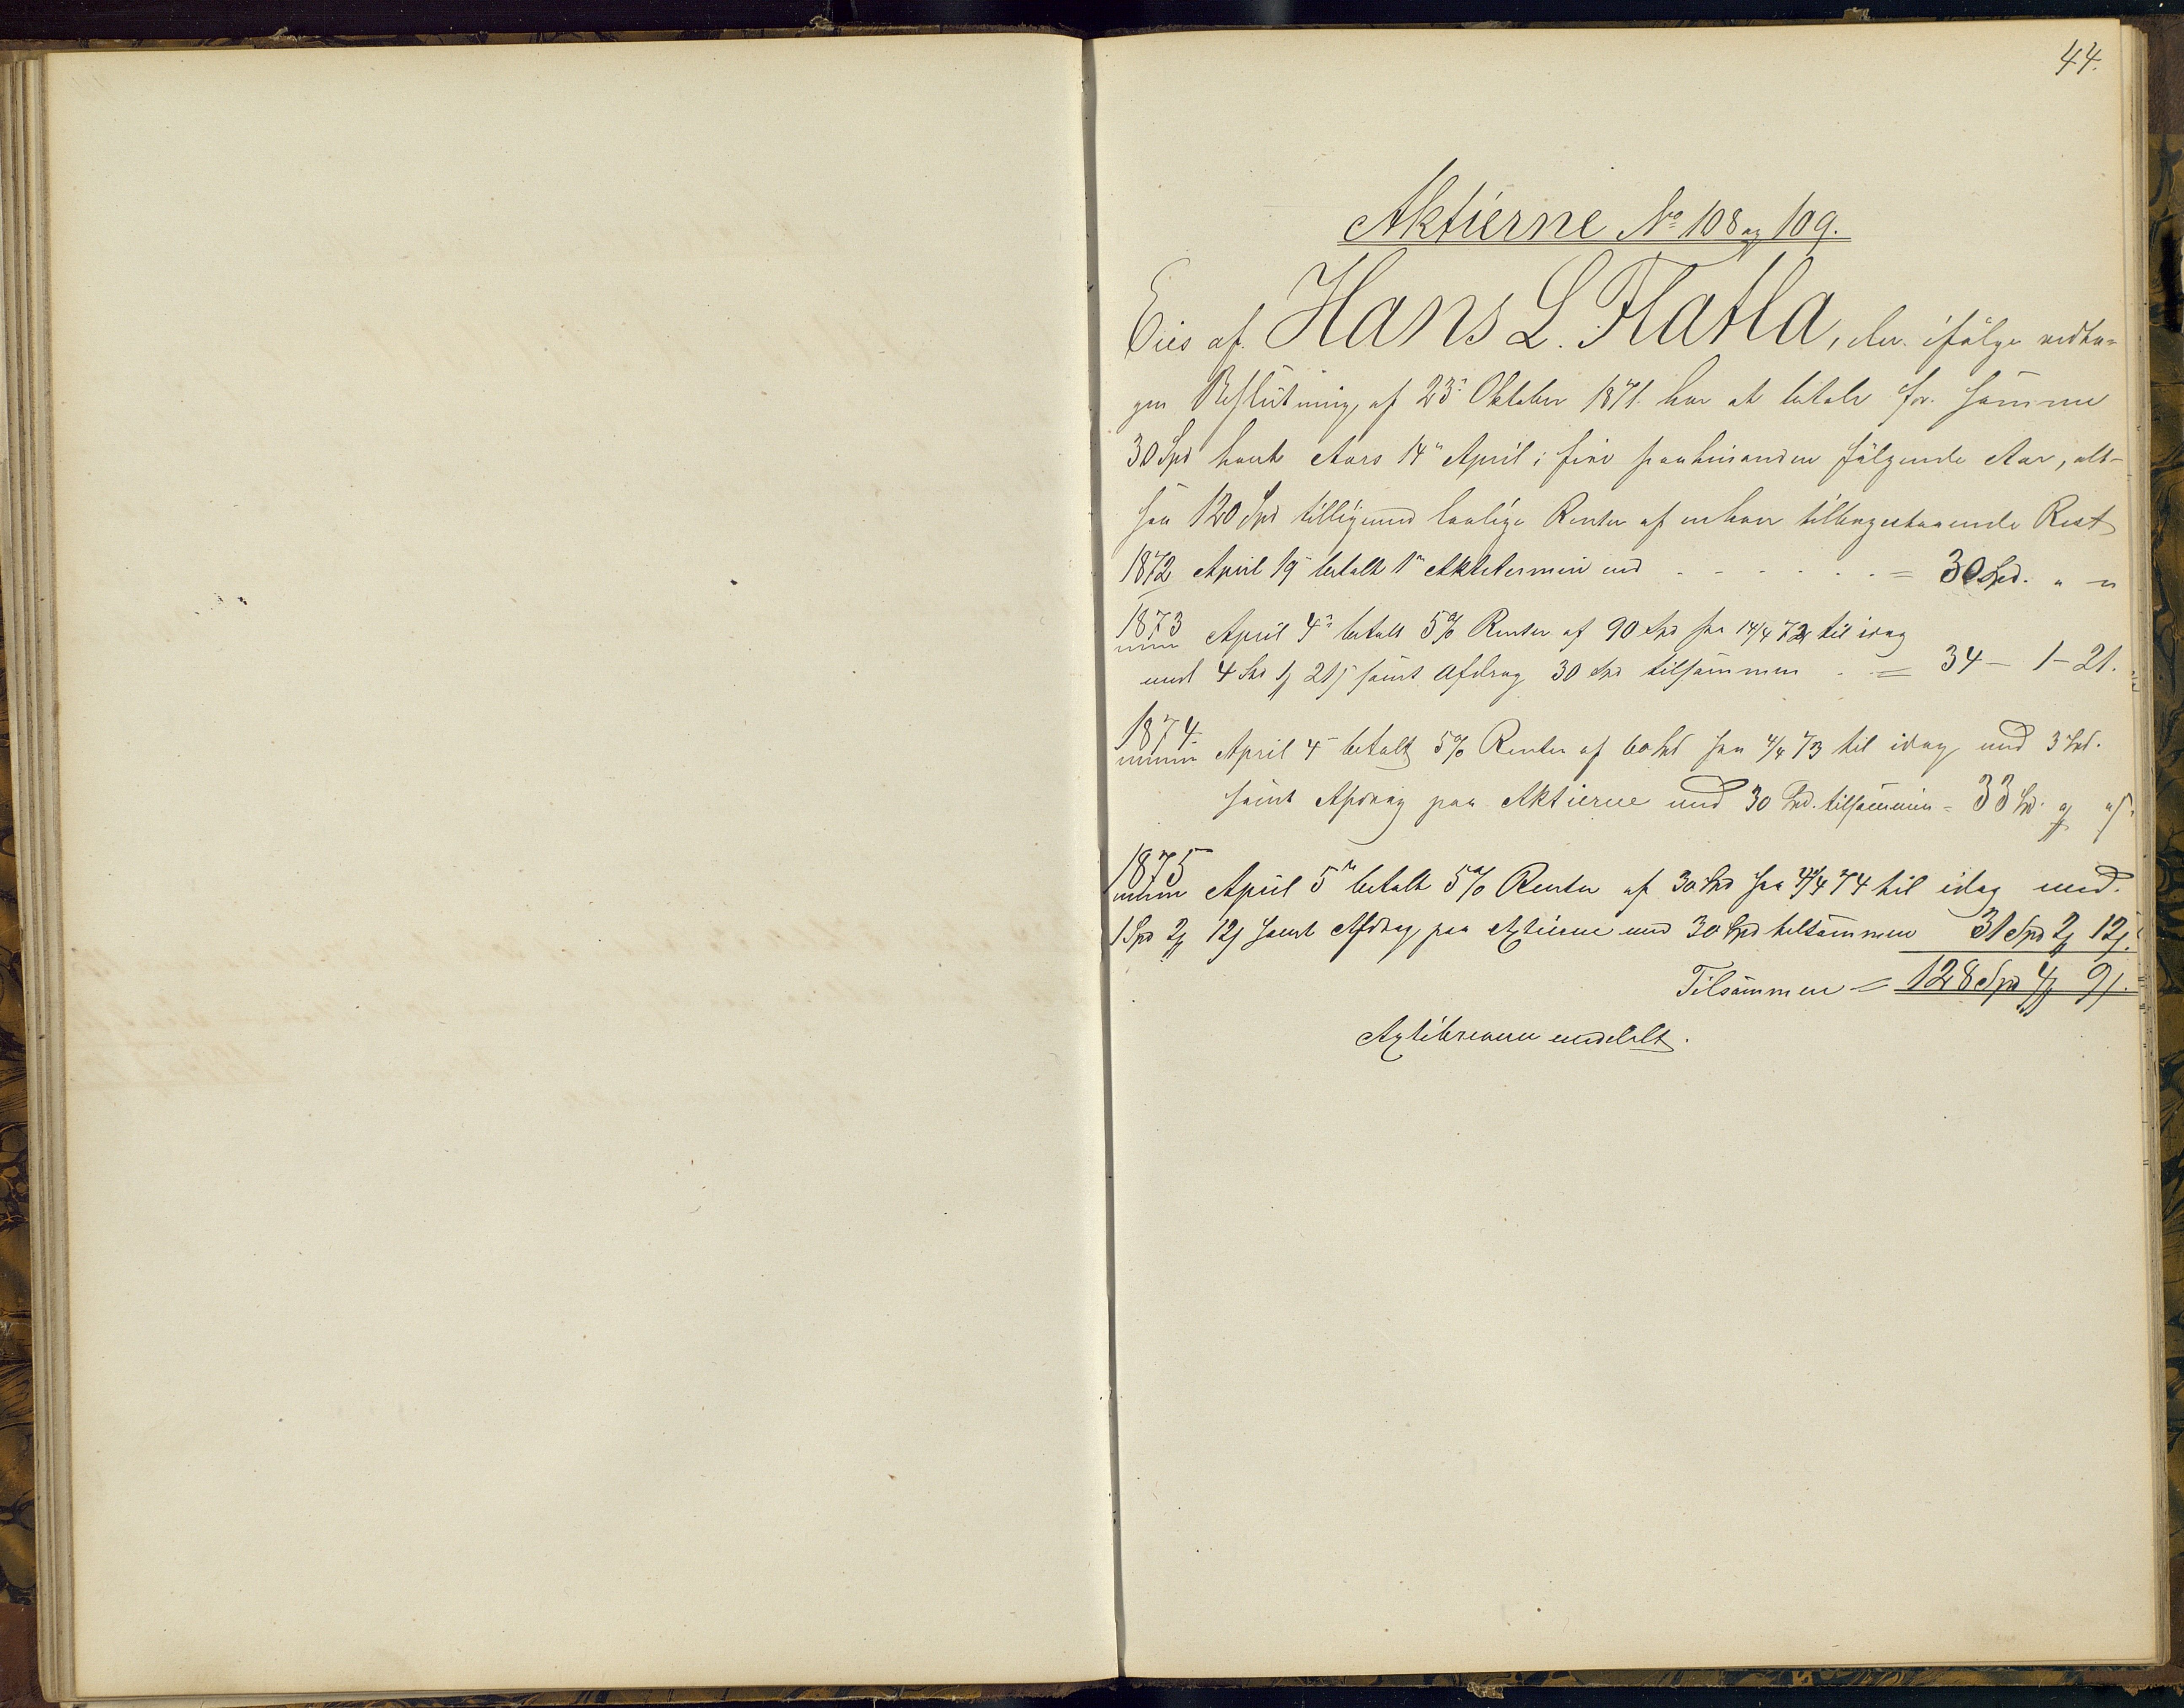 44.
Aktierne No 108 og 109.
Eies af Hans L. Flatla, der ifølge vedta-
gen Beslutning af 23de Oktober 1871 har at betale for samme
30 Spd hvert Aars 14de April i fire paahinanden følgende Aar, alt-
saa 120 Spd tilligemed lovlige Renter af enhver tilbagestaaende Rest
1872 April 19de betalt 1ste Aktietermin med - - - - - - = 30 Spd. " - "
1873 April 4de betalt 5% Renter af 90 Spd fra 14/4 72 til idag
med 4 Spd 1 21 samt Afdrag 30 Spd tilsammen - - = 34 - 1 - 21.
1874. April 4de betalt 5% Renter af 60 Spd fra 4/4 73 til idag med 3 Spd.
samt Afdrag paa Aktierne med 30 Spd. tilsammen = 33 Spd. " "
1875 April 5te betalt 5% Renter af 30 Spd fra 4/4 74 til idag med.
1 Spd 2 12 samt Afdrag paa Axtierne med 30 Spd tilsammen 31 Spd 2 12.
Tilsammen = 128 Spd 4 9.
Axtiebrevene meddelt.